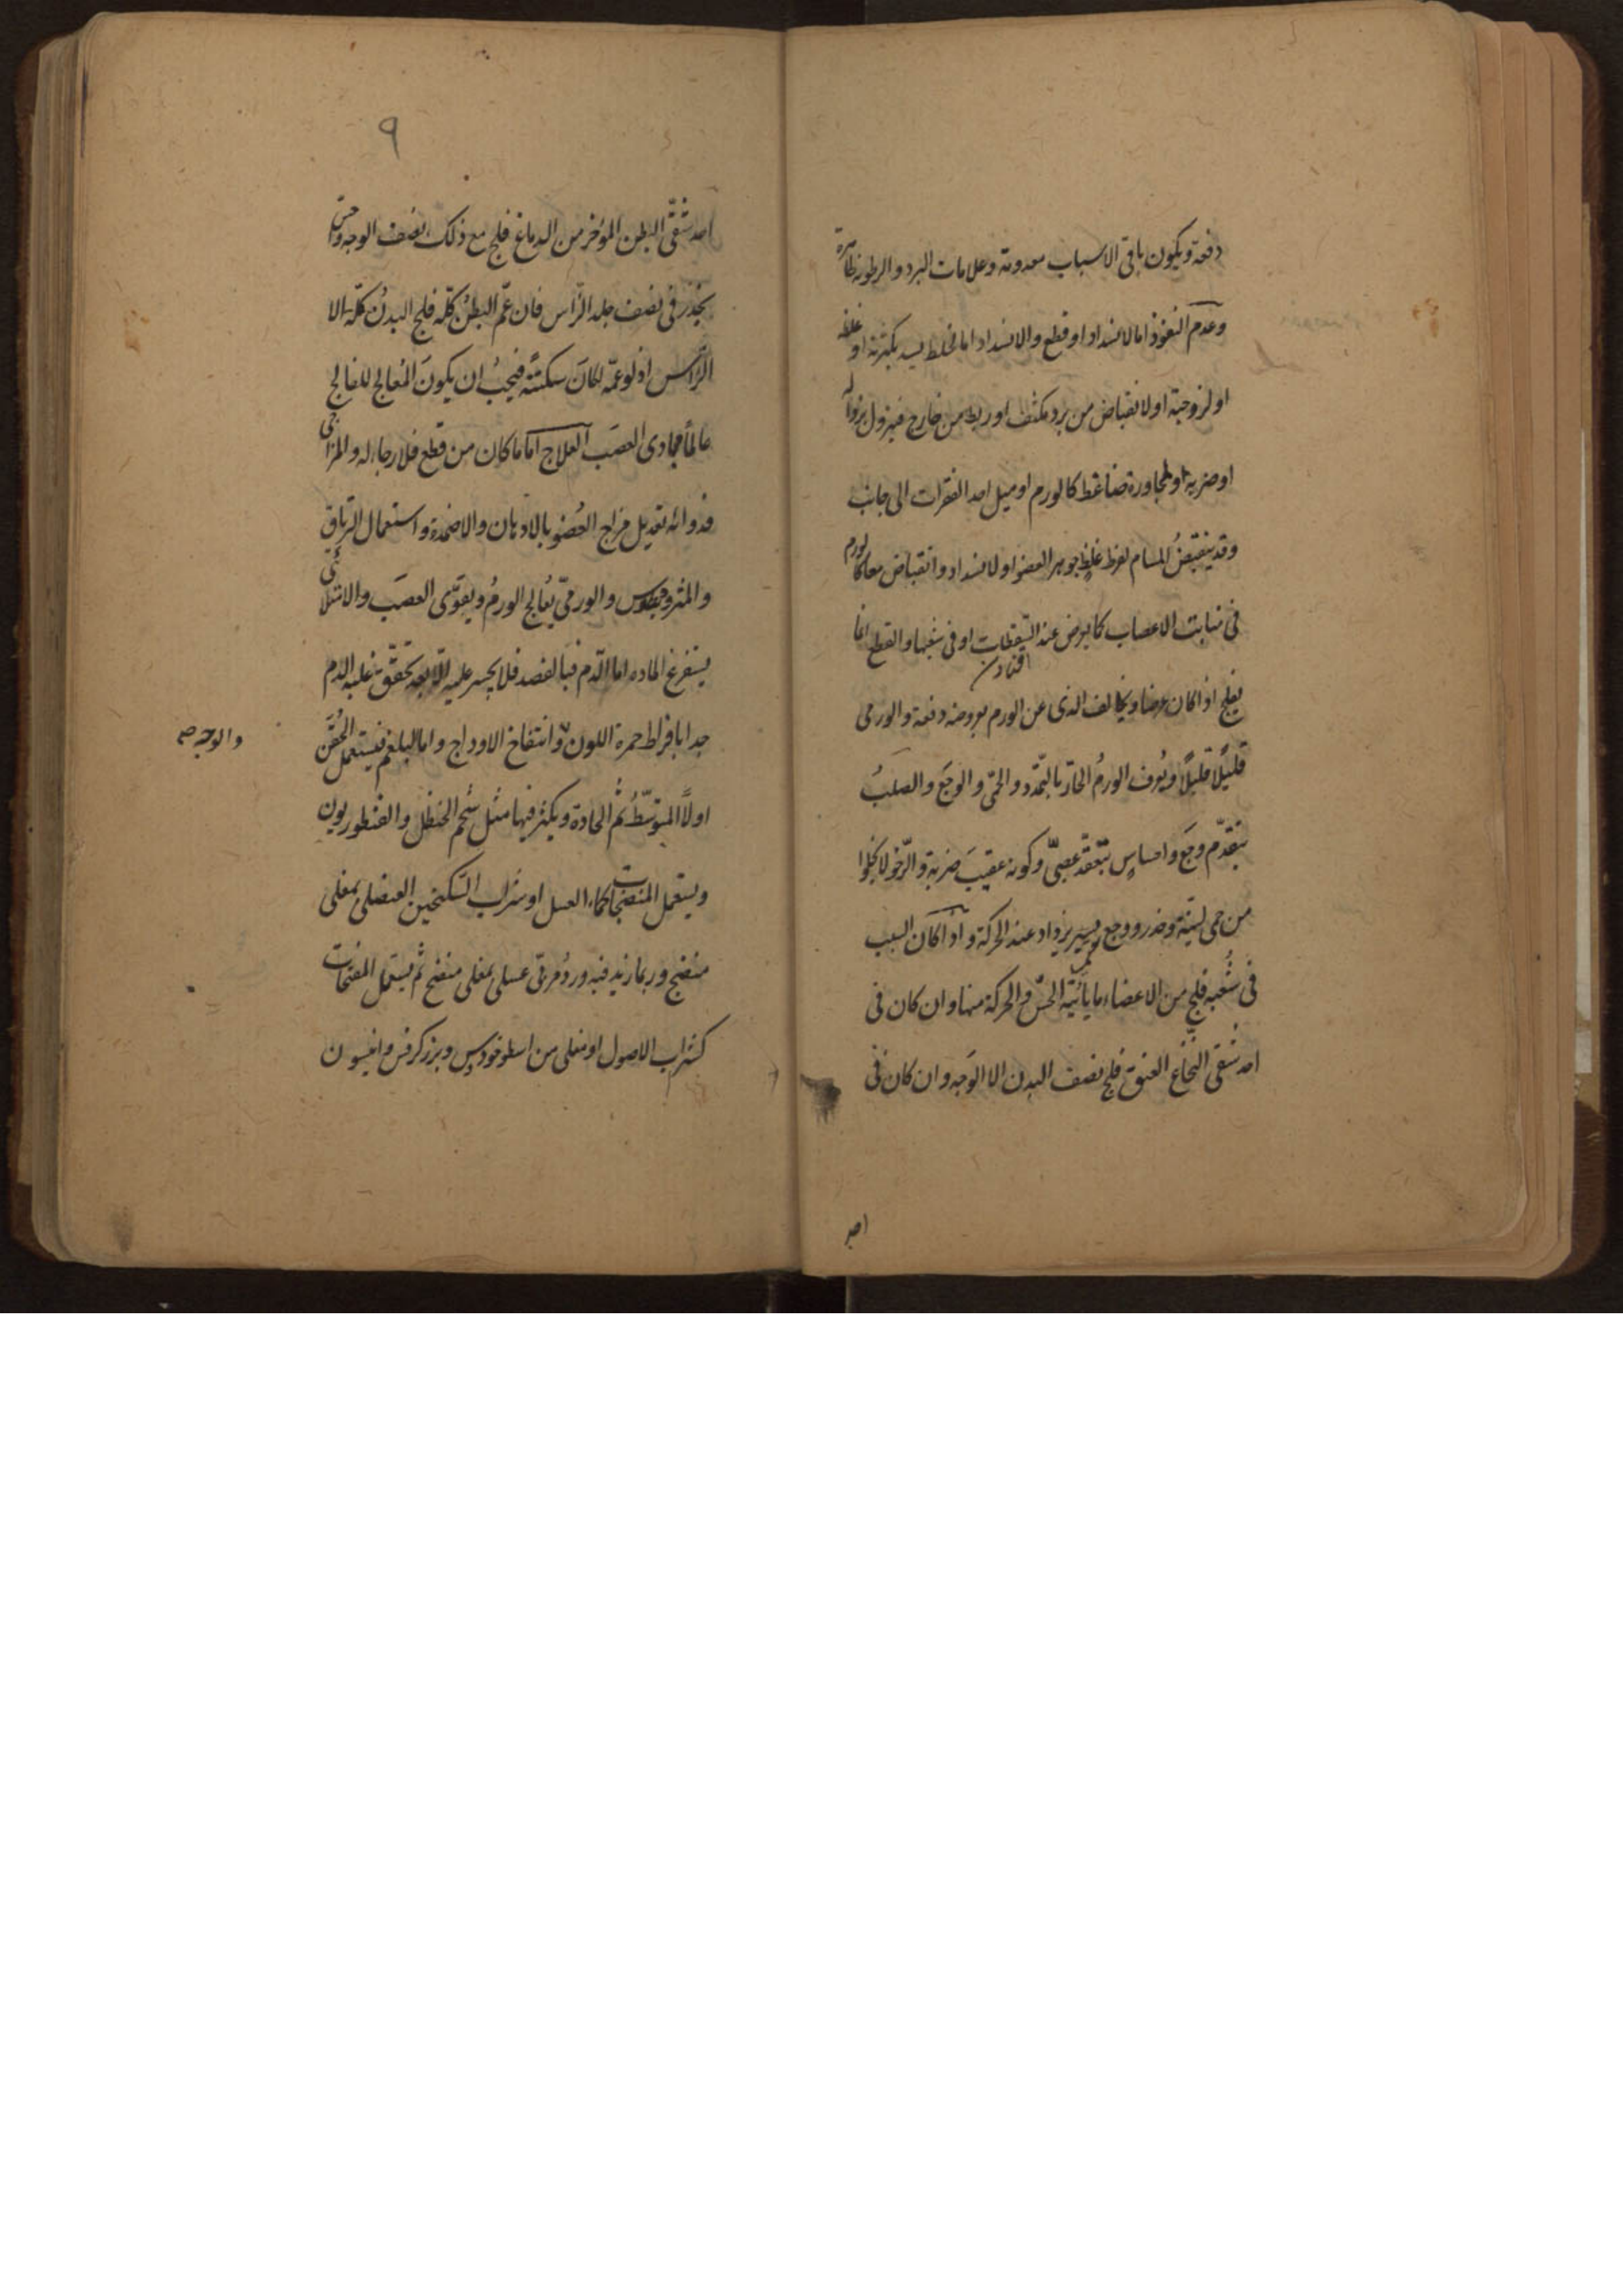 دفعة ويكون باقى الاسباب معدومة وعلامات البرد والرطوبة ظاهرة
وعدم النفوذ اما لانسداد او قطع والانسداد اما لخلط يسد بكثرته او غلظه
او لزوجته او لانقباض من برد مكثف او ربط من خارج فيزول بزواله
او ضربة او لمجاورة ضاغط كالورم او ميل احد الفقرات الى جانب
وقد ينقبض المسام لفرط غلظ جوهر العضو او لانسداد وانقباض معا كالورم
فى منابت الاعصاب كما يعرض عند السقطات او فى شعبها والقطع انما
افتادن
يفلج اذا كان عرضا ويخالف الذى عن الورم بعروضه دفعة والورمى
قليلًا قليلًا ويُعرف الورمُ الحارّ بالتمدّد والحمّى والوجَع والصلبُ
بتقدّم وجَع واحساسٍ بتعقّد عصبىّ وكونه عقيبَ ضربة والرّخو لا يخلوا
من حمى لينة وخدر ووجع يسير يزداد عند الحركة واذا كان السبب
فى شُعْبه فلج من الاعضاء ما يأتيه الحسّ والحركة منها وان كان فى
احد شقى النخاع العنق فلج نصف البدن الا الوجَه وان كان فى
احد
٩
احد شقّى البطن المؤخر من الدماغ فلج مع ذلك نصف الوجه وحسّ
بخدر فى نصف جلد الرّاس فان عمّ البطنُ كلّه فلج البدنُ كلّه الا
الرّاس اذ لو عمّه لكانَ سكتةً فيجبُ ان يكونَ المُعالج للفالج
عالمًا بمجادى العصَب العلاج اما ما كان من قطع فلا رجاء له والمزاجى
فدوائه تعديل مزاج العُضو بالادهان والاضمدة واستعمال الترياق
والمثروديطوس والورمىّ يُعالج الورمُ ويقوّى العصَب والامتلائى
يستفرغ الماده اما الدّم فبالفصد فلا يجسر عليه الّا بعد تحقّق غلبه الدم
جدا بافراط حمرة اللون وانتفاخ الاوداج واما البلغم فيستعمل الحُقَن
والوجه صح
اولًا المتوسّطُ ثم الحادة ويكثر فيها مثل شحم الحنظل والقنطوريون
ويستعمل المنضجات كماء العسل او شراب السكنجبين العنصلى بمغلى
منضج وربما زيد فيه ورد مربّى عسلى بمغلى منضج ثم يستعمل المفتحات
كشراب الاصول او مغلى من اسطوخودوس وبزر كرفس وانيسون